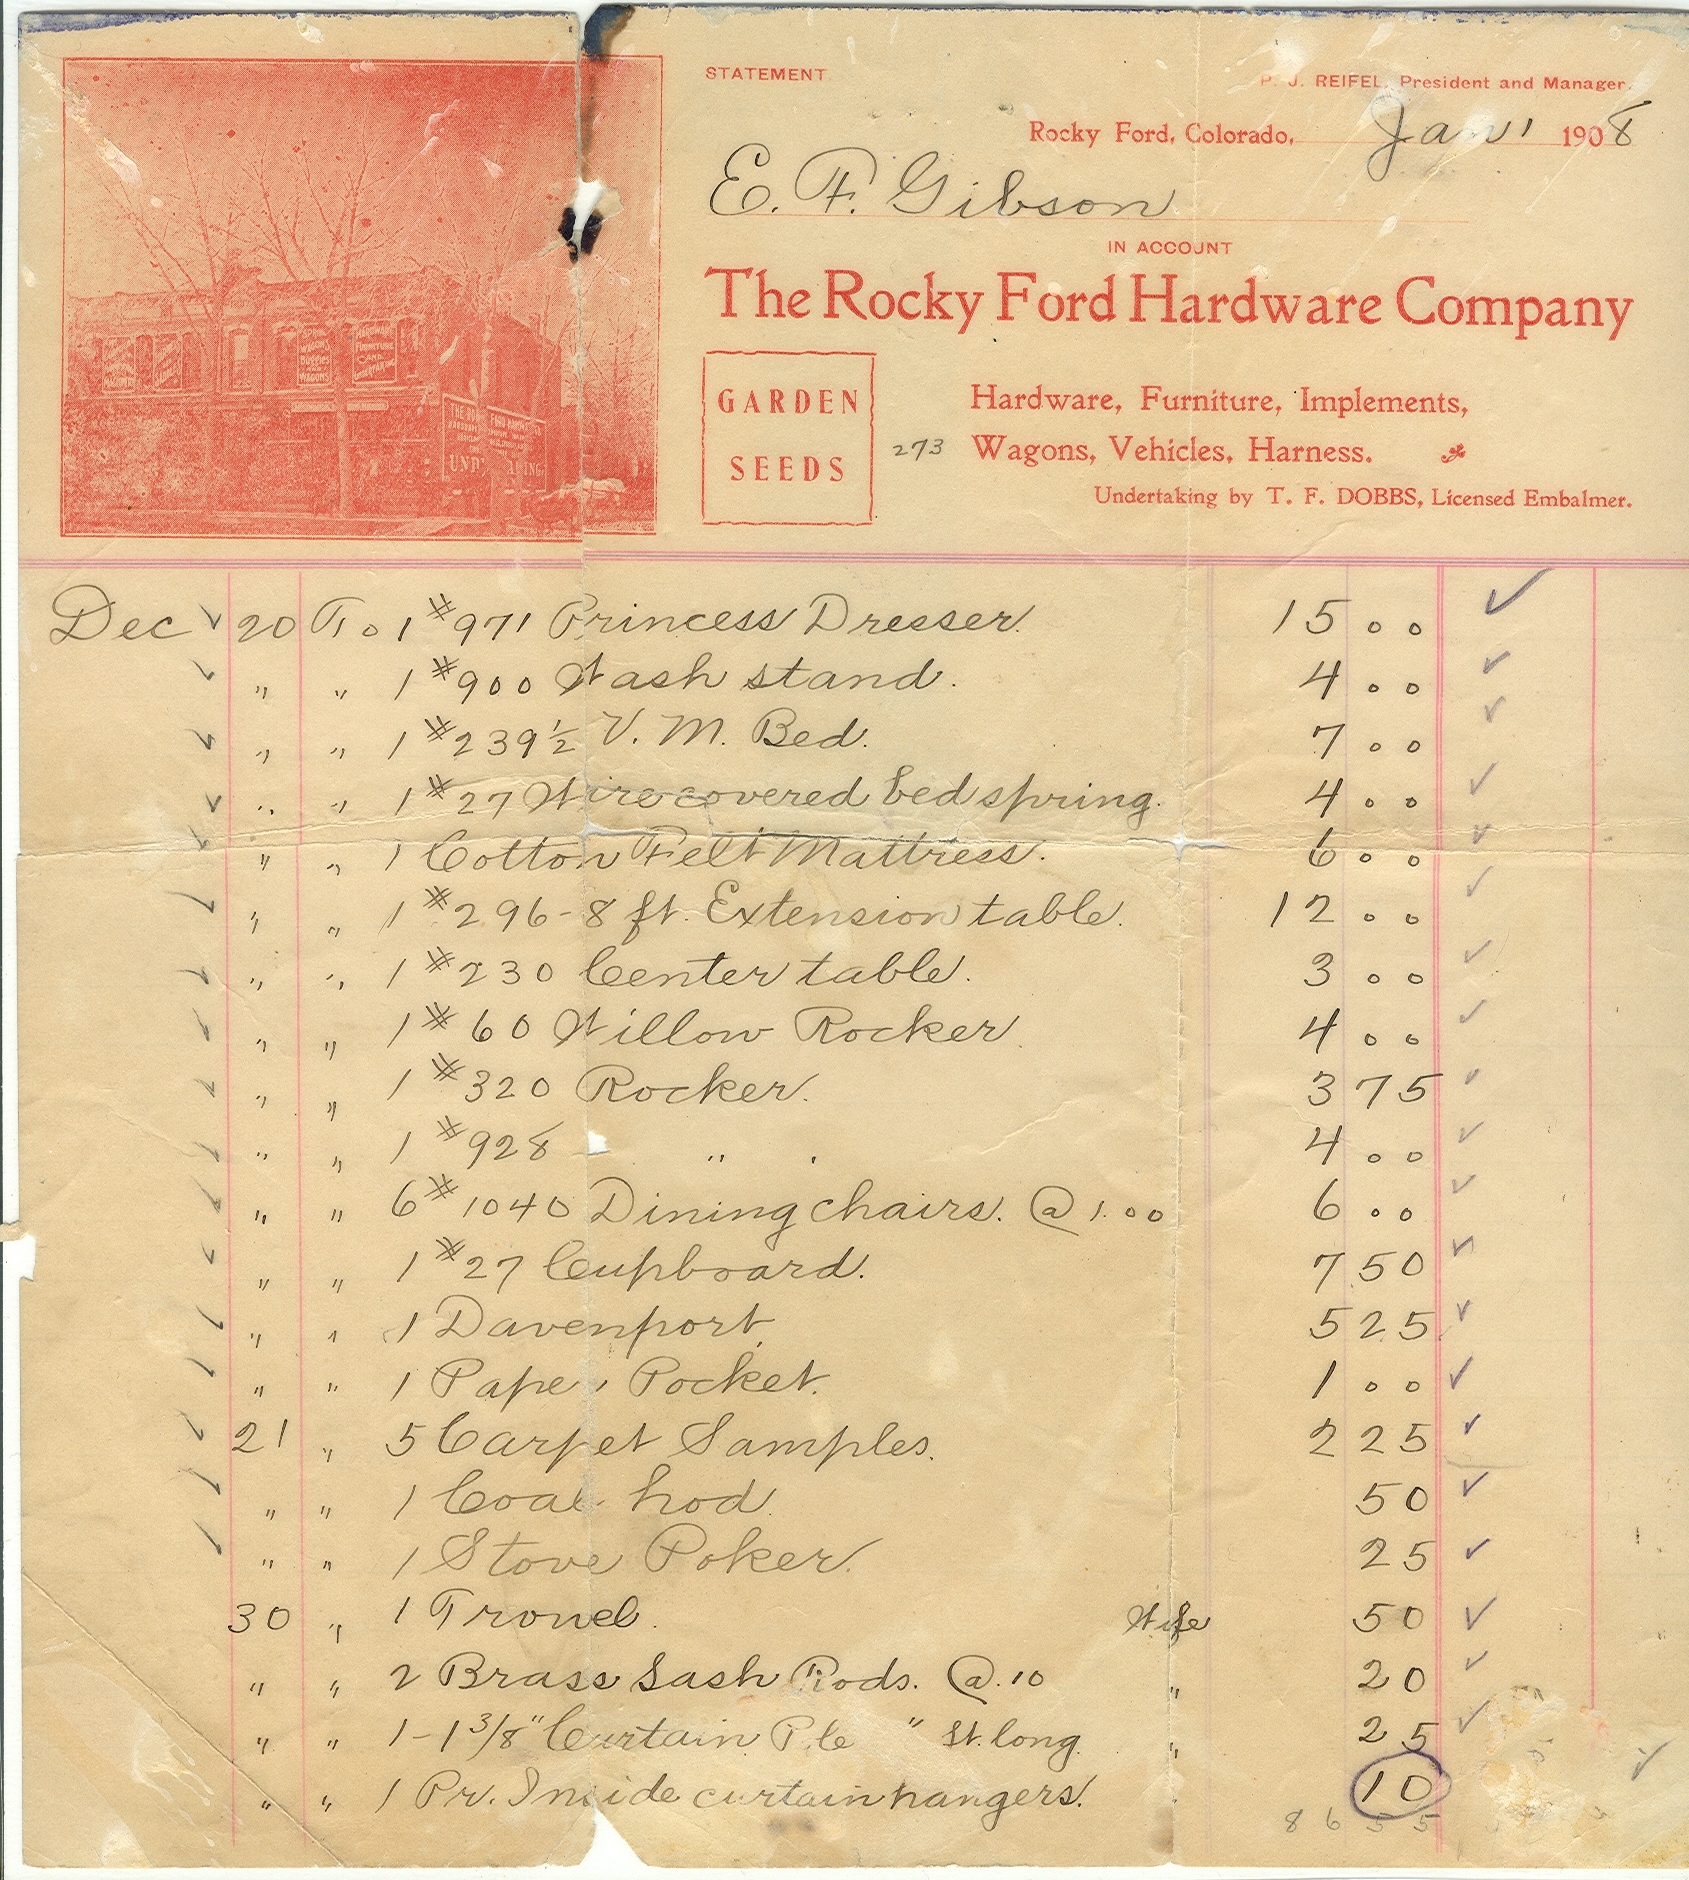 STATEMENT
P. J. REIFEL, President and Manager.
Rocky Ford, Colorado, Jan 1 1908
E. F. Gibson
IN ACCOUNT
The Rocky Ford Hardware Company
GARDEN
SEEDS
273
Hardware, Furniture, Implements,
Wagons, Vehicles, Harness.
Undertaking by T. F. DOBBS, Licensed Embalmer.
WAGONS
BUGGIES
AND
WAGONS
HARDWARE
FURNITURE
AND
UNDERTAKING
Dec 20 To 1 #971 Princess Dresser. 15 00
" " 1 #900 Wash stand. 4 00
" " 1 #239½ V. M. Bed. 7 00
" " 1 #27 Wire covered bed spring. 4 00
" " 1 Cotton Felt Mattress. 6 00
" " 1 #296-8 ft. Extension table. 12 00
" " 1 #230 Center table. 3 00
" " 1 #60 Willow Rocker. 4 00
" " 1 #320 Rocker. 3 75
" " 1 #928 " . 4 00
" " 6 #1040 Dining chairs. @ 1.00 6 00
" " 1 #27 Cupboard. 7 50
" " 1 Davenport 5 25
" " 1 Pape Pocket. 1 00
21 " 5 Carpet Samples. 2 25
" " 1 Coal hod. 50
" " 1 Stove Poker. 25
30 " 1 Trowel. Wife 50
" " 2 Brass Sash Rods. @.10 " 20
" " 1-1 3/8" Curtain P le " ft. long. " 25
" " 1 Pr. Inside curtain hangers. 10
86 55